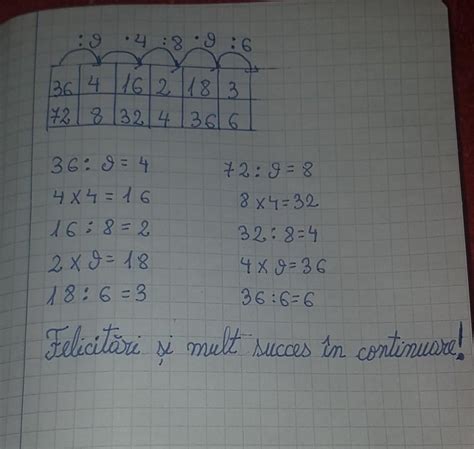 :9 •4 :8 •9 :6
36 4 16 2 18 3
72 8 32 4 36 6
36 : 9 = 4
4 x 4 = 16
16 : 8 = 2
2 x 9 = 18
18 : 6 = 3
72 : 9 = 8
8 x 4 = 32
32 : 8 = 4
4 x 9 = 36
36 : 6 = 6
Felicitări și mult succes în continuare!